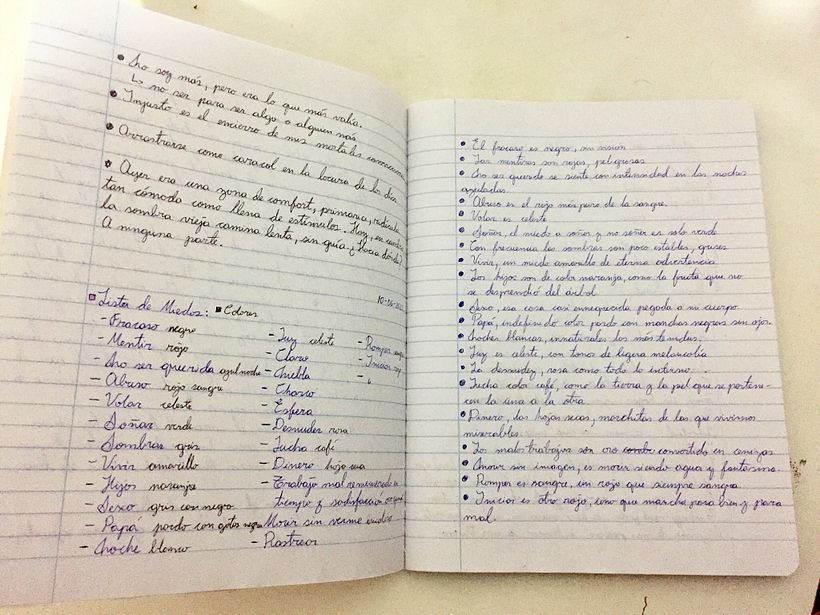 • No soy más, pero era lo que más valía.
↳ no ser para ser algo o alguien más
• Injusto es el encierro de mis mortales
• Arrastrarse como caracol en la locura de los días
• Ayer era una zona de comfort, primaria, ridícula
tan cómoda como llena de estímulos. Hoy, en cambio
la sombra vieja camina lenta, sin guía ¿Hacia dónde?
A ninguna parte.
■ Lista de Miedos: ■ Colores
- Fracaso negro
- Mentir rojo
- No ser querida azul noche
- Abuso rojo sangre
- Volar celeste
- Soñar verde
- Sombras gris
- Vivir amarillo
- Hijos naranja
- Sexo gris con negro
- Papá pardo con gotas negras
- Noche blanco
- Luz celeste
- Clavo
- Niebla
- Chavo
- Espera
- Desnudez rosa
- Lucha café
- Dinero hoja seca
- Trabajo mal remunerado en
tiempo y satisfacción
- Morir sin verme
- Rastrear
- Romper sangre
- Iniciar rojo
-
• El fracaso es negro, sin visión
• Las mentiras son rojas, peligrosas
• No ser querida se siente con intensidad en las noches
azuladas.
• Abuso es el rojo más puro de la sangre.
• Volar es celeste
• Soñar, el miedo a soñar y no soñar es solo verde
• Con frecuencia las sombras son poco estables, grises.
• Vivir, un miedo amarillo de eterna advertencia.
• Los hijos son de color naranja, como la fruta que no
se desprendió del árbol
• Sexo, esa cosa casi ennegrecida pegada a mi cuerpo.
• Papá, indefinido color pardo con manchas negras sin ojos.
• Noches blancas, innaturales las más temidas.
• Luz es celeste, con tonos de ligera melancolía
• La desnudez, rosa como todo lo interno.
• Lucha color café, como la tierra y la piel que se pertene-
cen la una a la otra.
• Dinero, las hojas secas, marchitas de las que vivimos
miserables.
• Los malos trabajos son oro convertido en cenizas.
• Morir sin imagen, es morir siendo agua y fantasma.
• Romper es sangre, un rojo que siempre sangra.
• Iniciar es otro rojo, uno que mancha para bien y para
mal.